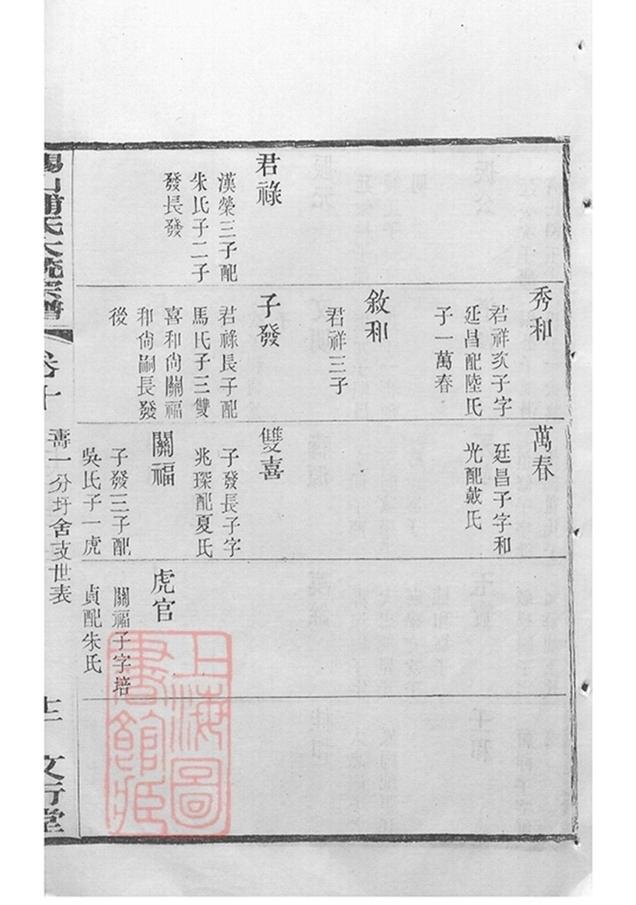 秀和
君祥次子字
廷昌配陸氏
子一萬春
萬春
廷昌子字和
光配戴氏
敘和
君祥三子
君祿
漢榮三子配
朱氏子二子
發長發
子發
君祿長子配
馬氏子三雙
喜和尚關福
和尚嗣長發
後
雙喜
子發長子字
兆琛配夏氏
關福
子發三子配
吳氏子一虎
虎官
關福子字培
貞配朱氏
錫山浦氏大統宗譜
卷十
壽一分圩舍支世表
十二
文行堂
上海圖
書館藏